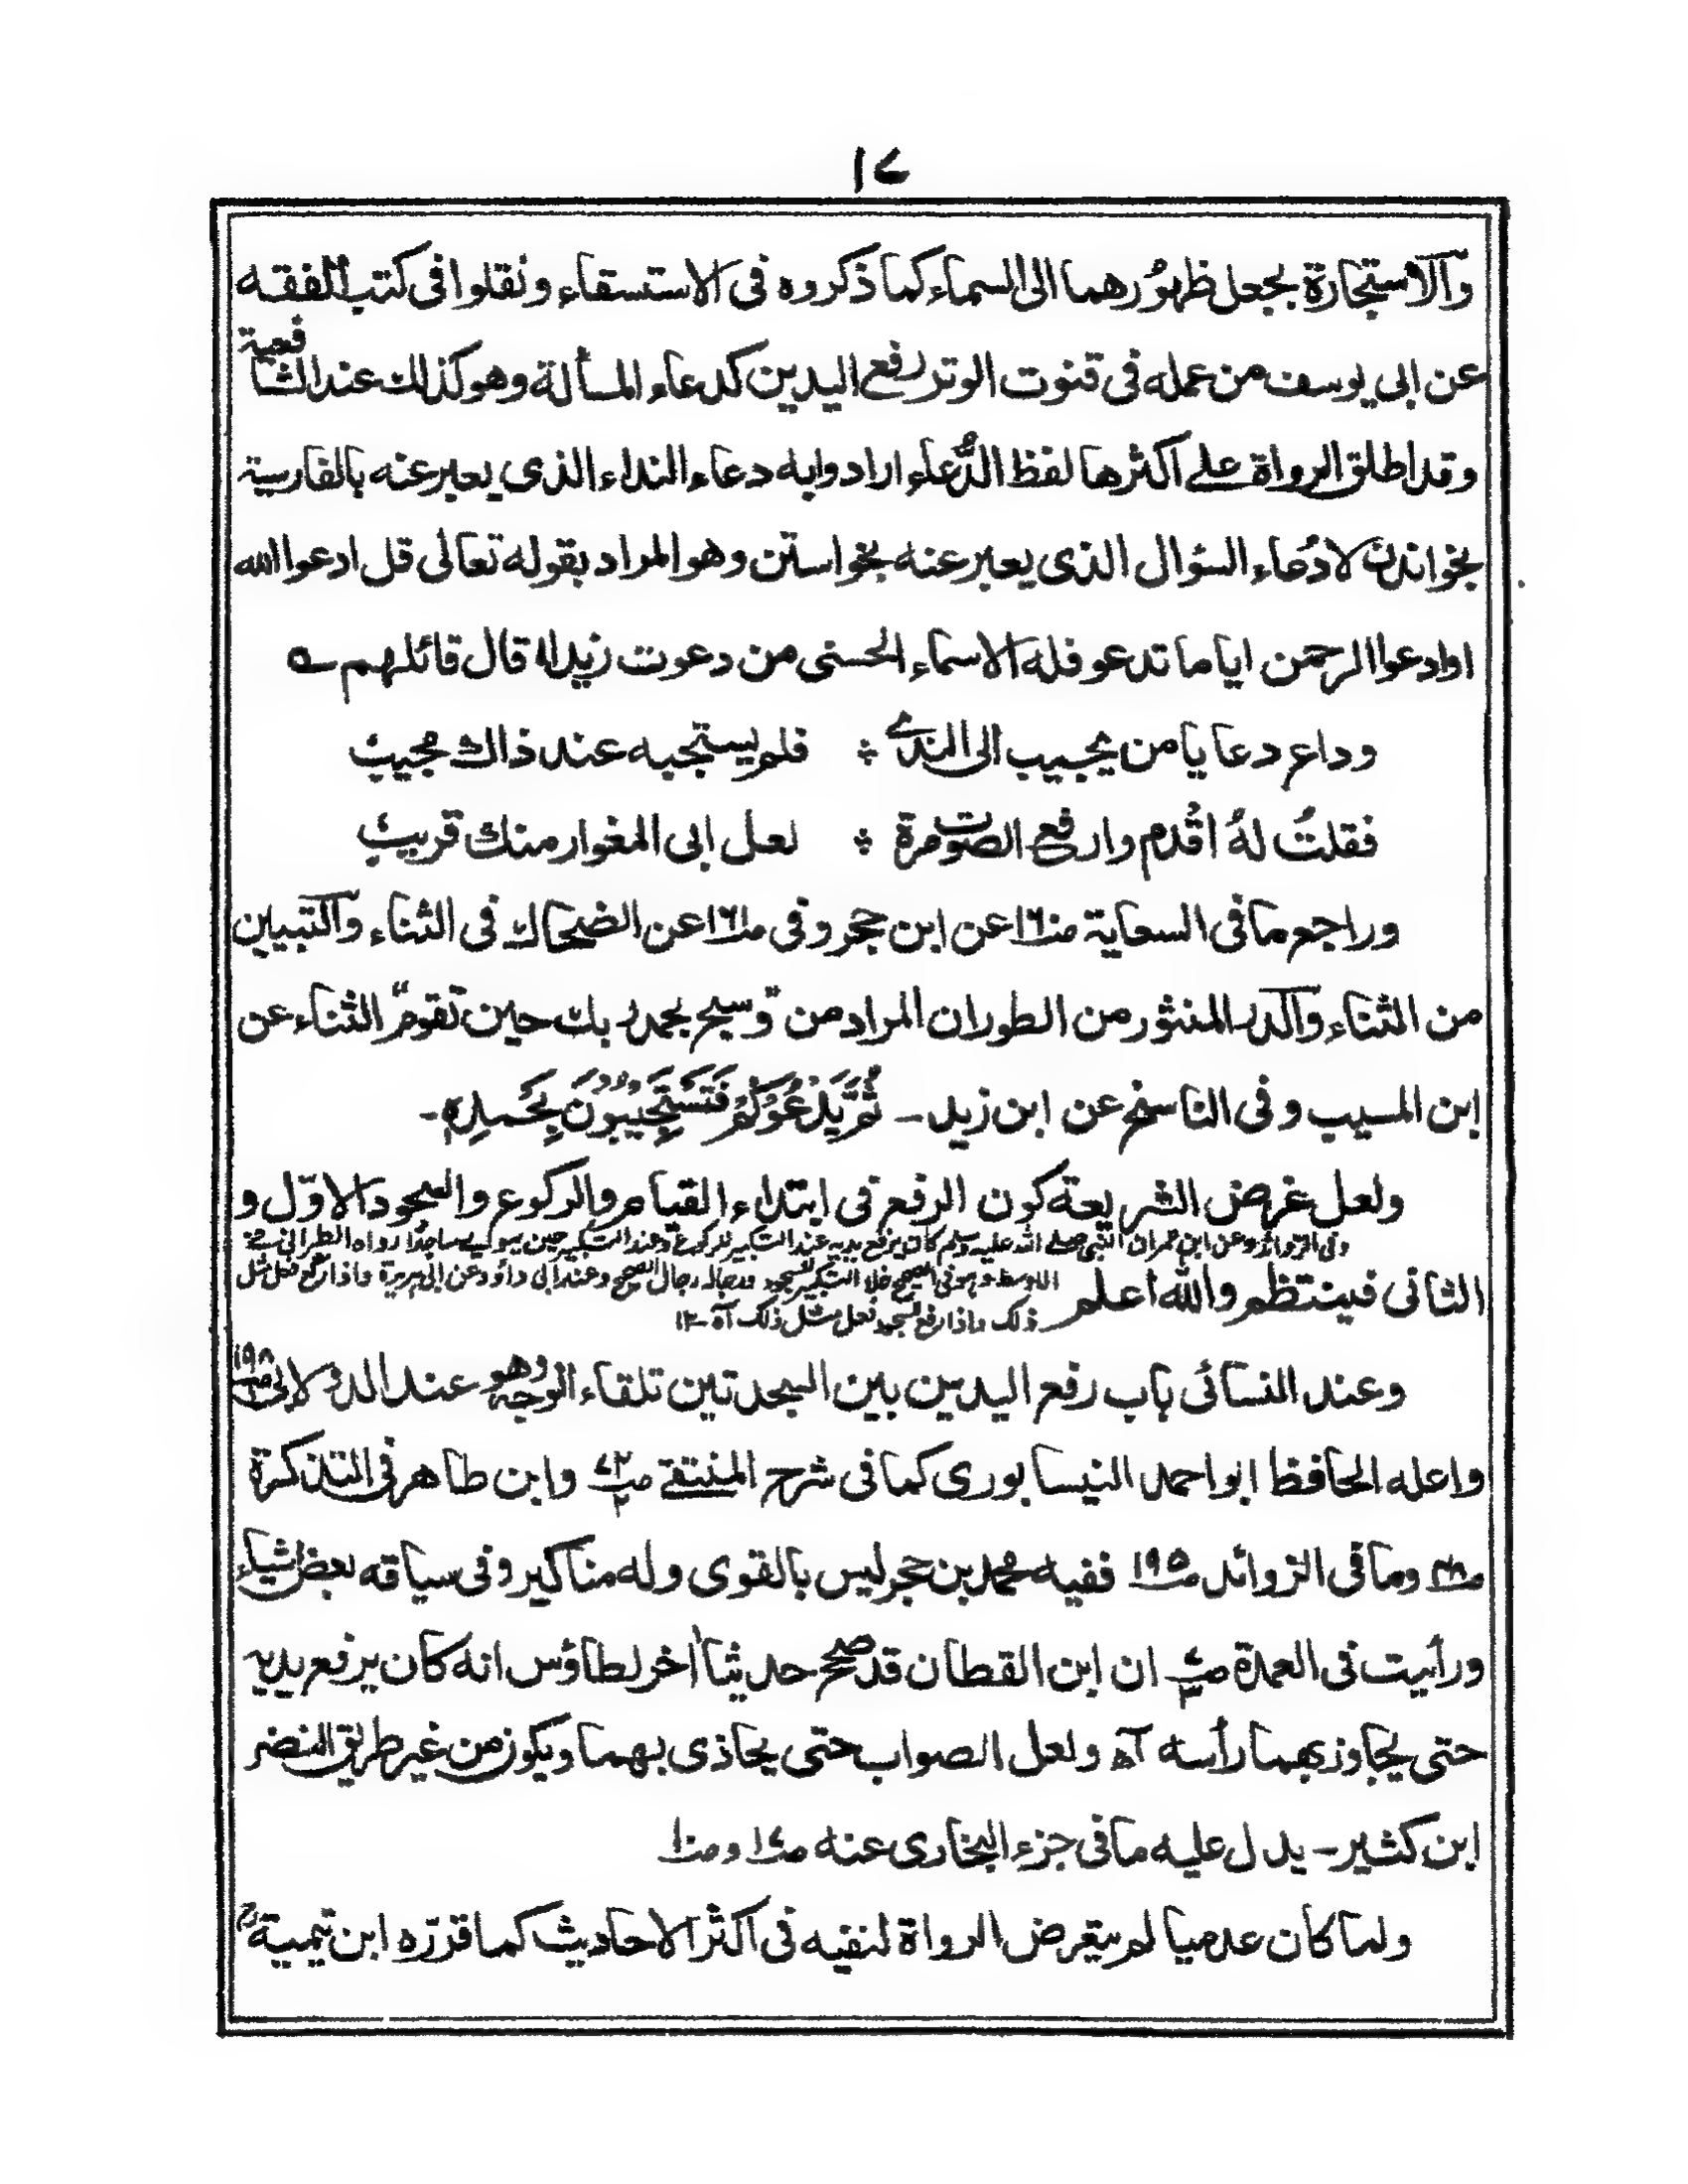 ١٧
والاستجارة بجعل ظهورهما الى السماء كما ذكروه فى الاستسقاء ونقلوا فى كتب الفقه
عن ابى يوسف من عمله فى قنوت الوتر رفع اليدين كدعاء المسألة وهو كذلك عند الشافعية
وقد اطلق الرواة على اكثرها لفظ الدُّعاء ارادوا به دعاء النداء الذى يعبر عنه بالفارسية
بخواندن لا دُعاء السؤال الذى يعبر عنه بخواستن وهو المراد بقوله تعالى قل ادعوا الله
او ادعوا الرحمن ايا ما تدعو فله الاسماء الحسنى من دعوت زيدا قال قائلهم ؎
وداع دعا يا من يجيب الى الندى ؞ فلم يستجبه عند ذاك مجيبُ
فقلتُ لهُ اقدم وارفع الصوت مرة ؞ لعل ابى المغوار منك قريبُ
وراجع ما فى السعاية صـ١٦ عن ابن حجر وفى صـ١٦١ عن الضحاك فى الثناء والتبيين
من الثناء والدر المنثور من الطور ان المراد من "وسبح بحمد ربك حين تقوم" الثناء عن
ابن المسيب وفى الناسخ عن ابن زيد ـ ثُمَّ يَدْعُوْكُمْ فَتَسْتَجِيْبُوْنَ بِحَمْدِهٖ ـ
ولعل غرض الشريعة كون الرفع فى ابتداء القيام والركوع والسجود الاوّل و
وفى الزوائد وعن ابن عمران النبى صلى الله عليه وسلم كان يرفع يديه عند التكبير للركوع وعند التكبير حين يهوى ساجدًا رواه الطبرانى فى
الثانى فينتظم والله اعلم
الاوسط وهو فى الصحيح خلا التكبير للسجود ورجاله رجال الصحيح وعند ابى داؤد عن ابى هريرة واذا ركع فعل مثل
ذلك واذا رفع للسجود فعل مثل ذلك آه ١٢
وعند النسائى باب رفع اليدين بين السجدتين تلقاء الوجه وهو عند الدولابى صـ١٩٨
واعله الحافظ ابو احمد النيسابورى كما فى شرح المنتقى وابن طاهر فى التذكرة
وما فى الزوائد صـ١٩٥ ففيه محمد بن حجر ليس بالقوى وله مناكير وفى سياقه بعض اشياء
ورأيت فى العمدة ان ابن القطان قد صحح حديثاً اخر لطاؤس انه كان يرفع يديه
حتى يجاوز بهما رأسه آه ولعل الصواب حتى يحاذى بهما ويكون من غير طريق النضر
ابن كثير ـ يدل عليه ما فى جزء البخارى عنه صـ١٧ و صـ١٠
ولما كان عدميا لم يتعرض الرواة لنفيه فى اكثر الاحاديث كما قرّره ابن تيميةؒ